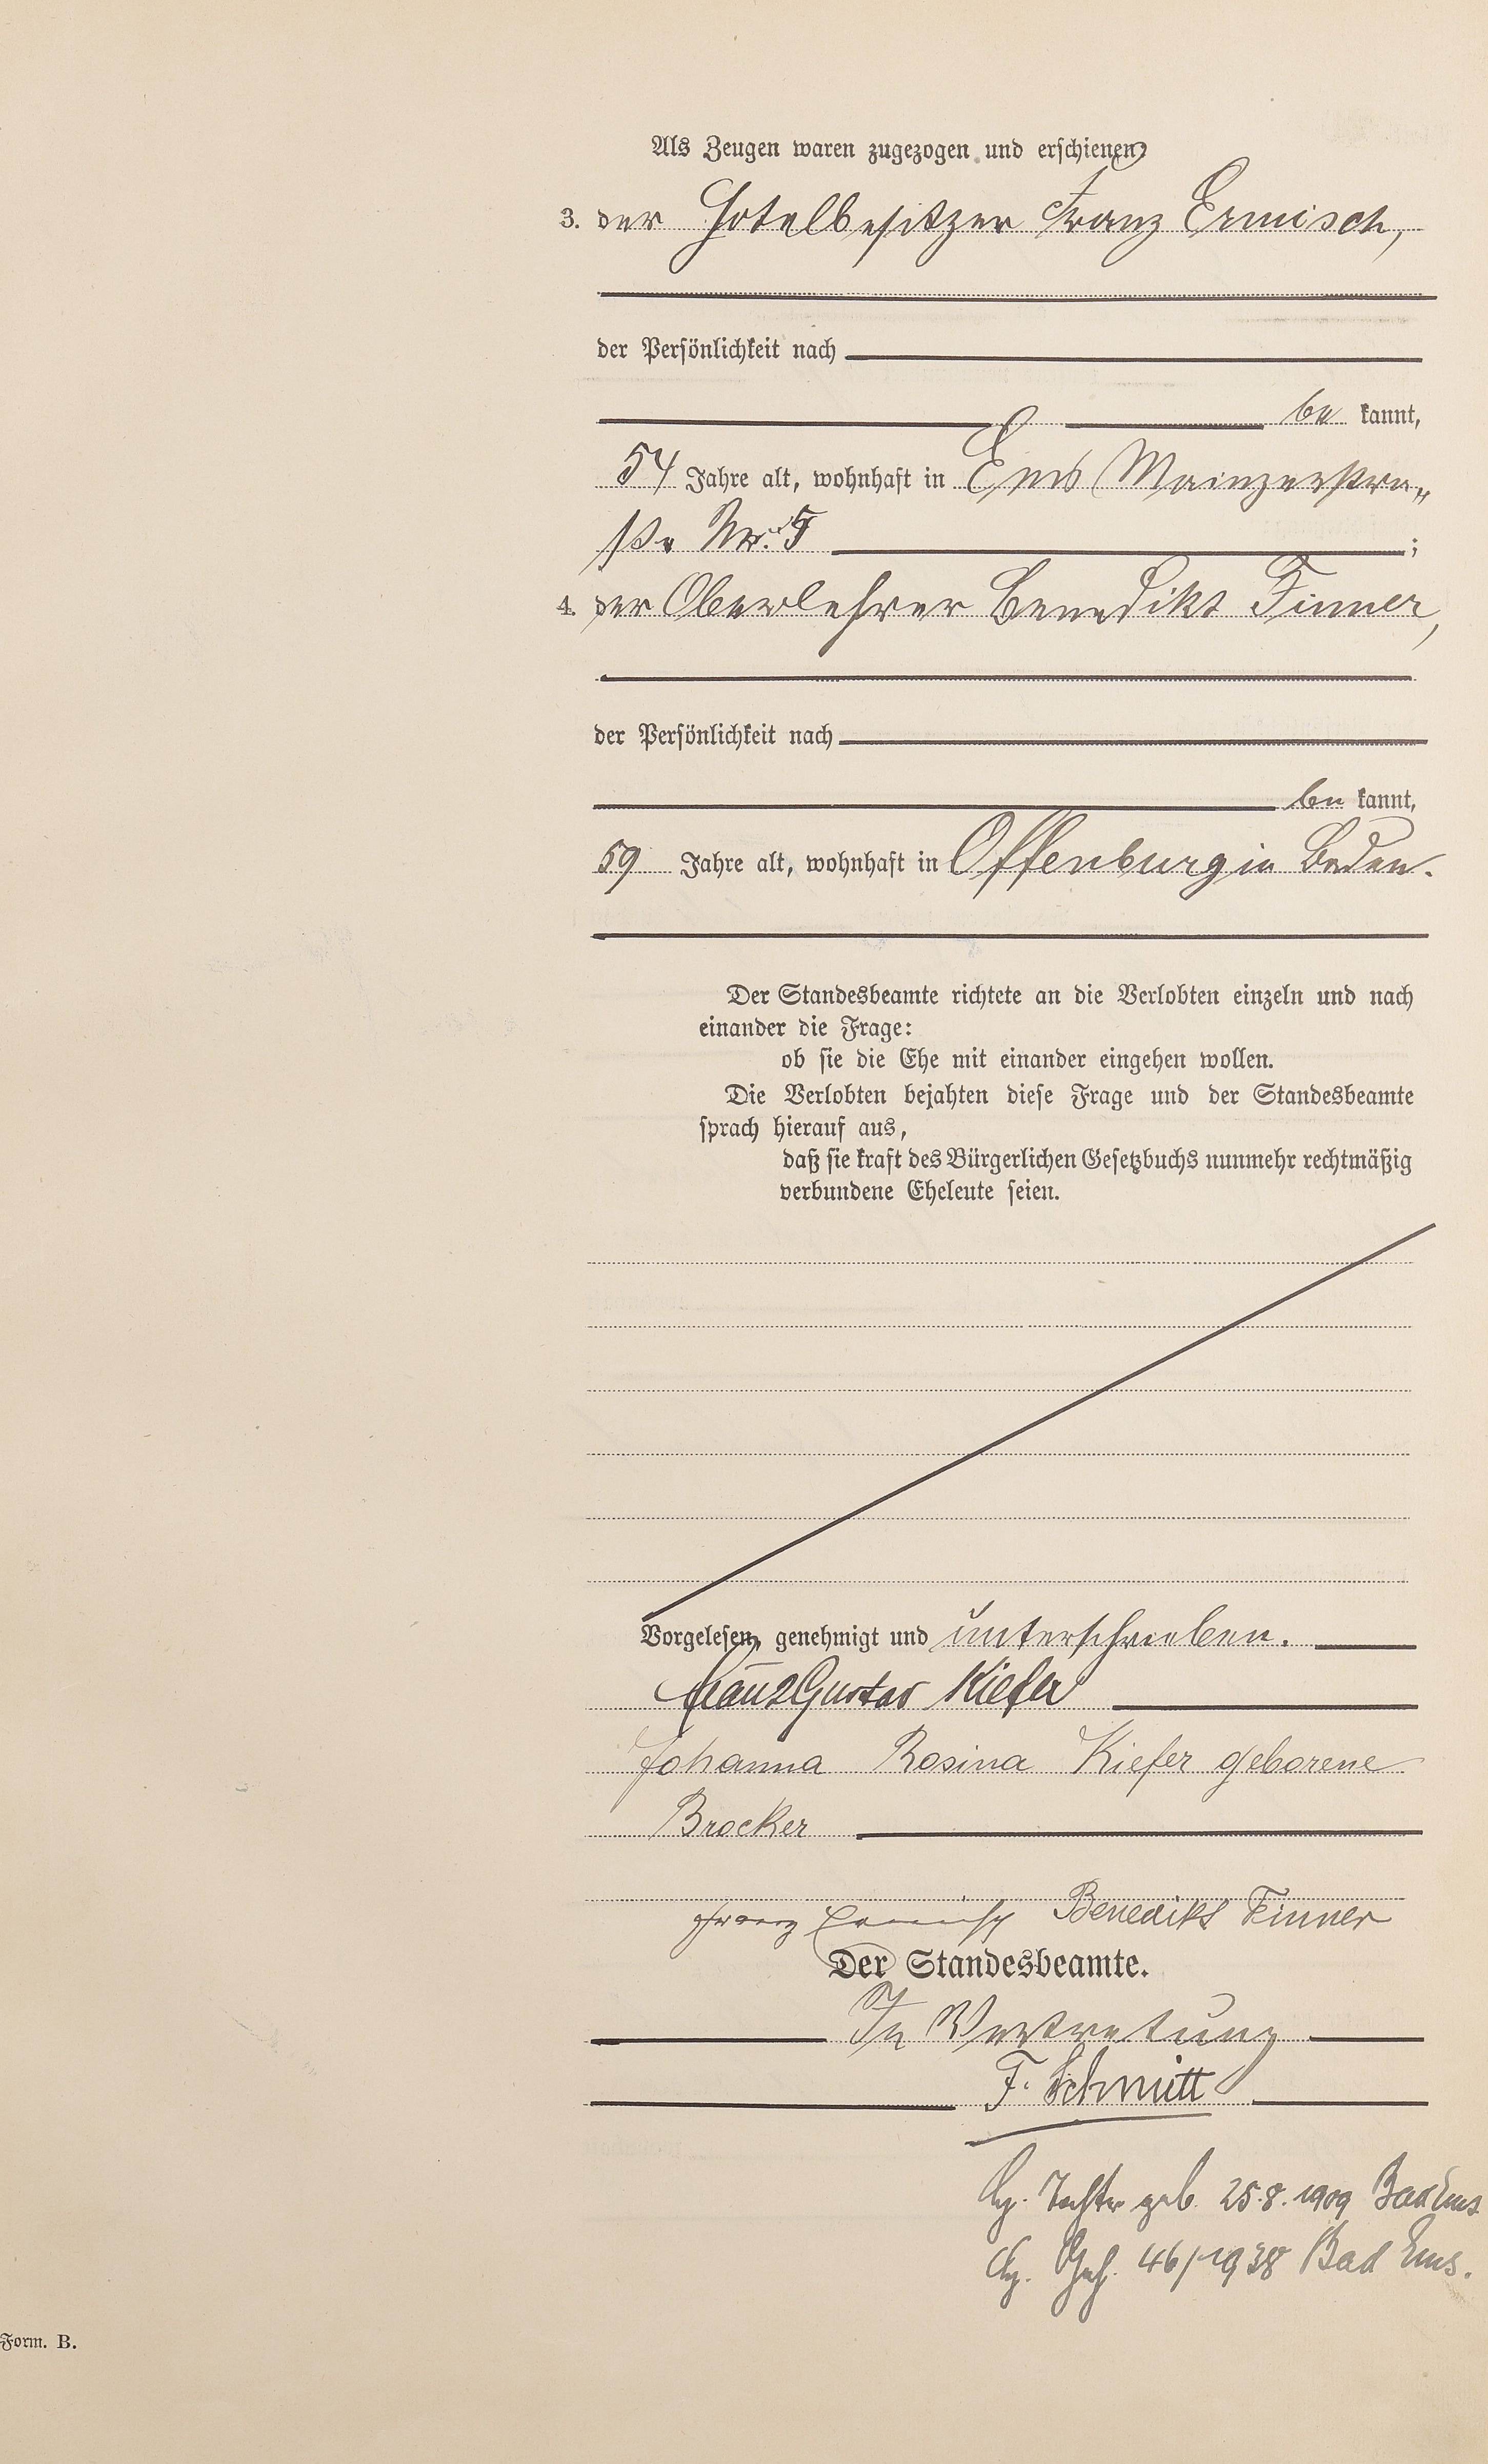 Als Zeugen waren zugezogen und erschienen
3. der Hotelbesitzer Franz Ermisch,
der Persönlichkeit nach
be kannt,
54 Jahre alt, wohnhaft in Ems Mainzerstra„
ße Nr. 5 ;
4. der Oberlehrer Benedikt Finner,
der Persönlichkeit nach
be kannt,
59 Jahre alt, wohnhaft in Offenburg in Baden.
Der Standesbeamte richtete an die Verlobten einzeln und nach
einander die Frage:
ob sie die Ehe mit einander eingehen wollen.
Die Verlobten bejahten diese Frage und der Standesbeamte
sprach hierauf aus,
daß sie kraft des Bürgerlichen Gesetzbuchs nunmehr rechtmäßig
verbundene Eheleute seien.
Vorgelesen, genehmigt und unterschrieben.
Franz Gustav Kiefer
Johanna Rosina Kiefer geborene
Brocker
Franz Ermisch Benedikt Finner
Der Standesbeamte.
In Vertretung
F. Schmitt
Tochter geb. 25.8.1909 Bad Ems
46/1938 Bad Ems.
Form. B.